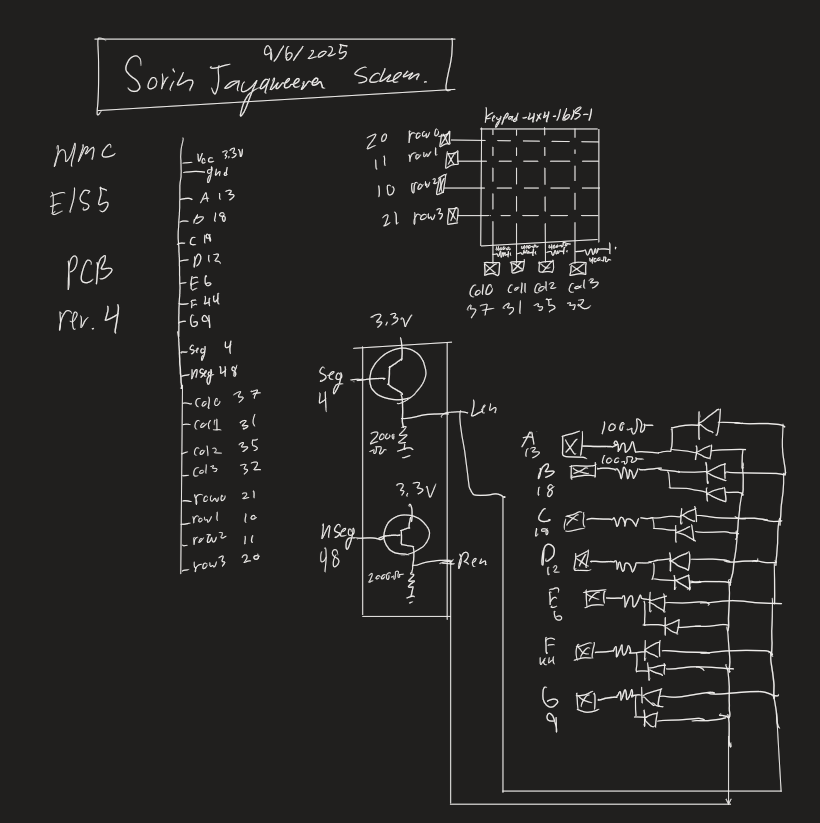 9/6/2025
Sorin Jayaweera Schem.
MMC
E155
PCB
rev. 4
Vcc 3.3V
gnd
A 13
B 18
C 19
D 12
E 6
F 44
G 9
Seg 4
nseg 48
Col0 37
Col1 31
Col2 35
Col3 32
row0 21
row1 10
row2 11
row3 20
Keypad-4x4-16B-1
20 row0
11 row1
10 row2
21 row3
Col0 Col1 Col2 Col3
37 31 35 32
3.3V
Seg
4
Len
200Ω
3.3V
nseg
48
Ren
200Ω
A
13
100Ω
B
18
100Ω
C
19
D
12
E
6
F
44
G
9